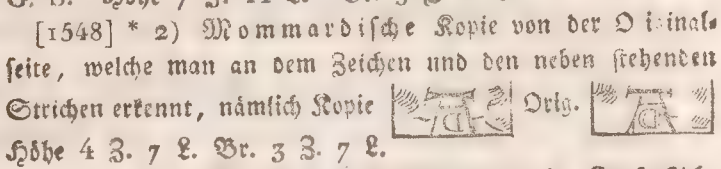 [1548] * 2) Mommardische Kopie von der O i inal⸗
seite, welche man an dem Zeichen und den neben stehenden
Strichen erkennt, nämlich Kopie Orig.
Höhe 4 Z. 7 L. Br. 3 Z. 7 L.